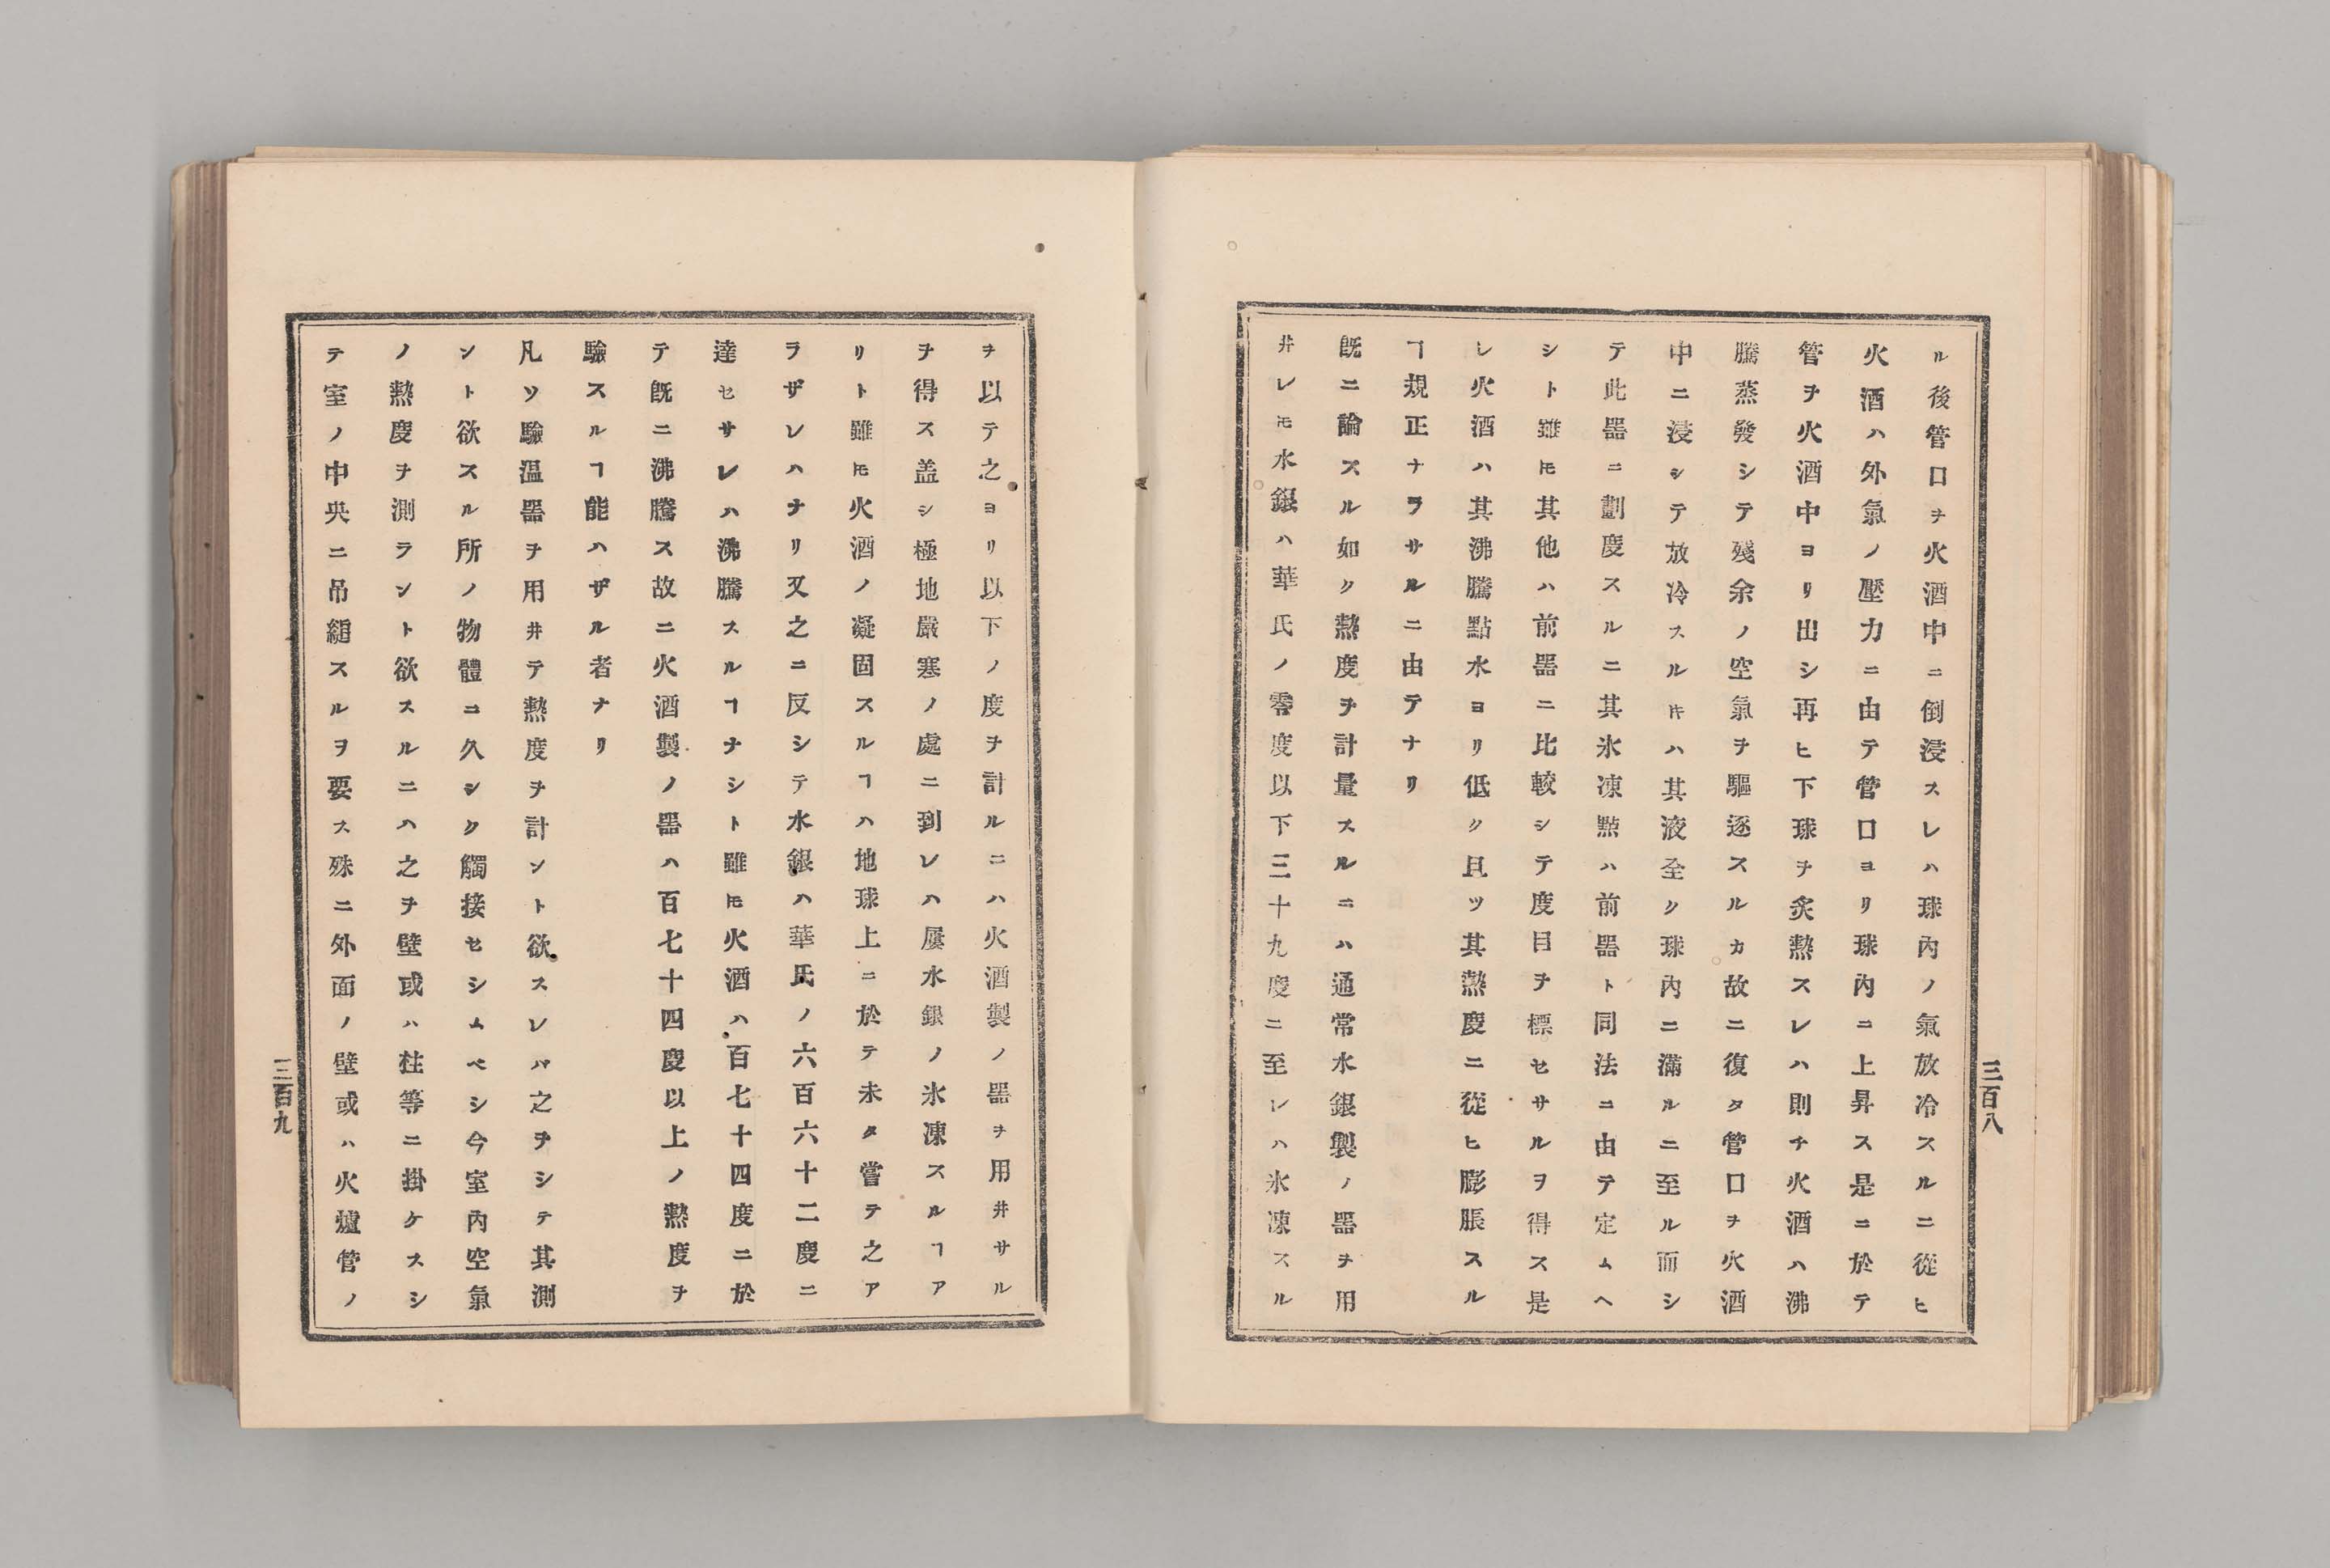 ル後管口ヲ火酒中ニ倒浸スレハ球內ノ氣放冷スルニ從ヒ
火酒ハ外氣ノ壓力ニ由テ管口ヨリ球內ニ上昇ス是ニ於テ
管ヲ火酒中ヨリ出シ再ヒ下球ヲ炙熱スレハ則チ火酒ハ沸
騰蒸發シテ殘余ノ空氣ヲ驅逐スルカ故ニ復タ管口ヲ火酒
中ニ浸シテ放冷スルキハ其液全ク球內ニ滿ルニ至ル而シ
テ此器ニ劃度スルニ其氷凍點ハ前器ト同法ニ由テ定ムヘ
シト雖𪜈其他ハ前器ニ比較シテ度目ヲ標セサルヲ得ス是
レ火酒ハ其沸騰點水ヨリ低ク且ツ其熱度ニ從ヒ膨脹スル
ヿ規正ナラサルニ由テナリ
既ニ論スル如ク熱度ヲ計量スルニハ通常水銀製ノ器ヲ用
井レ𪜈水銀ハ華氏ノ零度以下三十九度ニ至レハ氷凍スル
三百八
ヲ以テ之ヨリ以下ノ度ヲ計ルニハ火酒製ノ器ヲ用井サル
ヲ得ス盖シ極地嚴寒ノ處ニ到レハ屢水銀ノ氷凍スルヿア
リト雖𪜈火酒ノ凝固スルヿハ地球上ニ於テ未タ嘗テ之ア
ラザレハナリ又之ニ反シテ水銀ハ華氏ノ六百六十二度ニ
達セサレハ沸騰スルヿナシト雖𪜈火酒ハ百七十四度ニ於
テ既ニ沸騰ス故ニ火酒製ノ器ハ百七十四度以上ノ熱度ヲ
驗スルヿ能ハザル者ナリ
凡ツ驗溫器ヲ用井テ熱度ヲ計ント欲スレバ之ヲシテ其測
ント欲スル所ノ物體ニ久シク觸接セシムベシ今室內空氣
ノ熱度ヲ測ラント欲スルニハ之ヲ壁或ハ柱等ニ掛ケスシ
テ室ノ中央ニ吊縋スルヲ要ス殊ニ外面ノ壁或ハ火爐管ノ
三百九